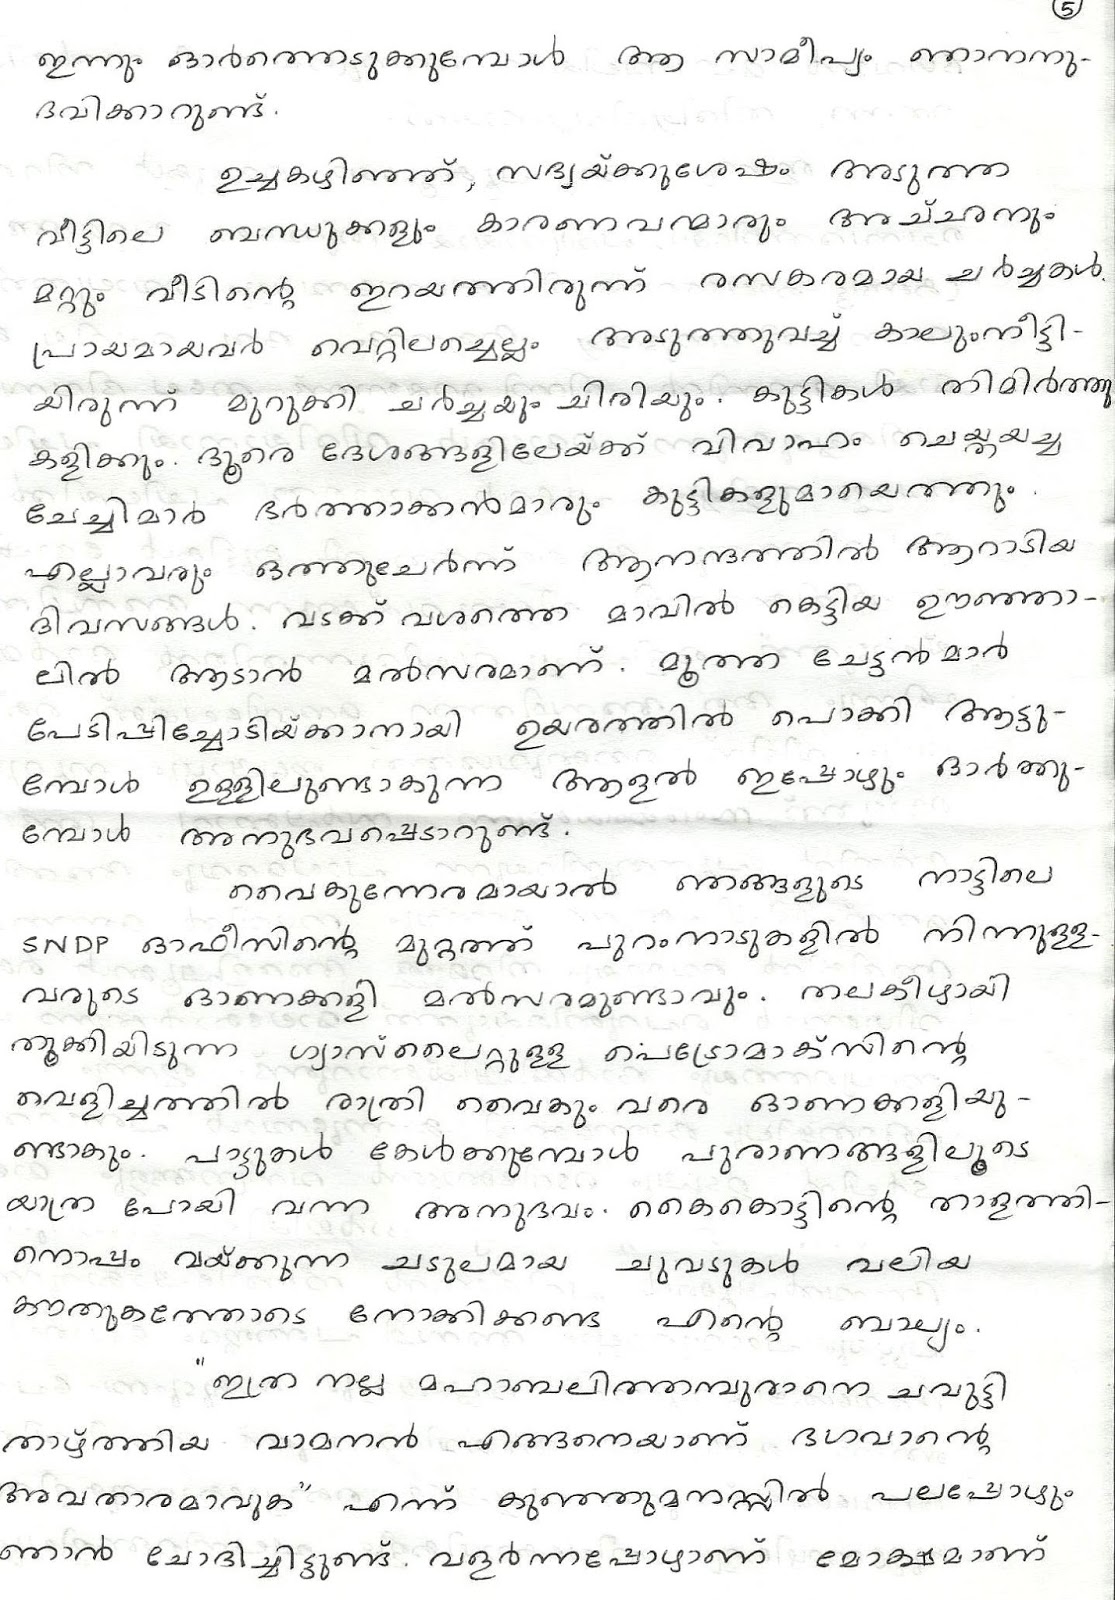 5
ഇന്നും ഓർത്തെടുക്കുമ്പോൾ ആ സാമീപ്യം ഞാനനു-
ഭവിക്കാറുണ്ട്.
ഉച്ചകഴിഞ്ഞ്, സദ്യയ്ക്കുശേഷം അടുത്ത
വീട്ടിലെ ബന്ധുക്കളും കാരണവന്മാരും അച്ഛനും
മറ്റും വീടിന്റെ ഇറയത്തിരുന്ന് രസകരമായ ചർച്ചകൾ.
പ്രായമായവർ വെറ്റിലച്ചെല്ലം അടുത്തുവച്ച് കാലുംനീട്ടി-
യിരുന്ന് മുറുക്കി ചർച്ചയും ചിരിയും. കുട്ടികൾ തിമിർത്തു
കളിക്കും. ദൂരെ ദേശങ്ങളിലേയ്ക്ക് വിവാഹം ചെയ്തയച്ച
ചേച്ചിമാർ ഭർത്താക്കൻമാരും കുട്ടികളുമായെത്തും.
എല്ലാവരും ഒത്തുചേർന്ന് ആനന്ദത്തിൽ ആറാടിയ
ദിവസങ്ങൾ. വടക്ക് വശത്തെ മാവിൽ കെട്ടിയ ഊഞ്ഞാ-
ലിൽ ആടാൻ മൽസരമാണ്. മൂത്ത ചേട്ടൻമാർ
പേടിപ്പിച്ചോടിയ്ക്കാനായി ഉയരത്തിൽ പൊക്കി ആട്ടു-
മ്പോൾ ഉള്ളിലുണ്ടാകുന്ന ആളൽ ഇപ്പോഴും ഓർത്തു-
മ്പോൾ അനുഭവപ്പെടാറുണ്ട്.
വൈകുന്നേരമായാൽ ഞങ്ങളുടെ നാട്ടിലെ
SNDP ഓഫീസിന്റെ മുറ്റത്ത് പുറംനാടുകളിൽ നിന്നുള്ള-
വരുടെ ഓണക്കളി മൽസരമുണ്ടാവും. തലകീഴായി
തൂക്കിയിടുന്ന ഗ്യാസ്‌ലൈറ്റുള്ള പെട്രോമാക്സിന്റെ
വെളിച്ചത്തിൽ രാത്രി വൈകും വരെ ഓണക്കളിയു-
ണ്ടാകും. പാട്ടുകൾ കേൾക്കുമ്പോൾ പുരാണങ്ങളിലൂടെ
യാത്ര പോയി വന്ന അനുഭവം. കൈകൊട്ടിന്റെ താളത്തി-
നൊപ്പം വയ്ക്കുന്ന ചടുലമായ ചുവടുകൾ വലിയ
കൗതുകത്തോടെ നോക്കിക്കണ്ട എന്റെ ബാല്യം.
"ഇത്ര നല്ല മഹാബലിത്തമ്പുരാനെ ചവുട്ടി
താഴ്ത്തിയ വാമനൻ എങ്ങനെയാണ് ഭഗവാന്റെ
അവതാരമാവുക" എന്ന് കുഞ്ഞുമനസ്സിൽ പലപ്പോഴും
ഞാൻ ചോദിച്ചിട്ടുണ്ട്. വളർന്നപ്പോഴാണ് മോക്ഷമാണ്